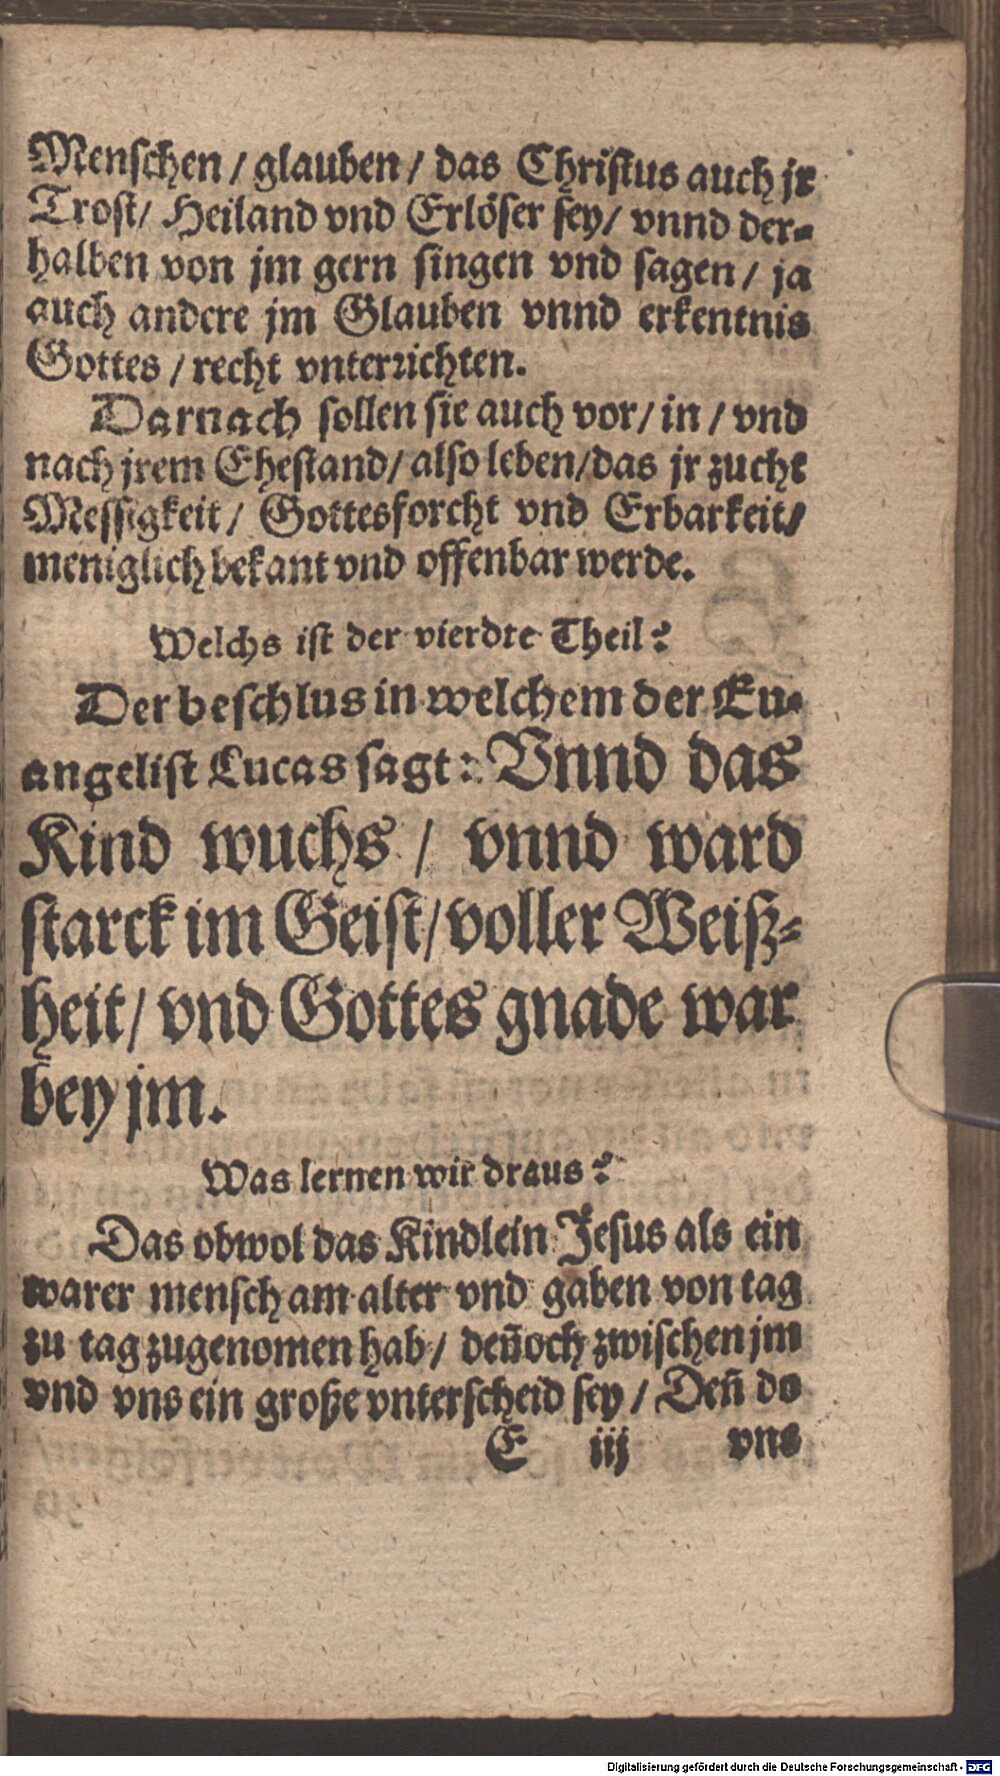 Menschen / glauben / das Christus auch jr
Trost / Heiland vnd Erlöser sey / vnnd der-
halben von jm gern singen vnd sagen / ja
auch andere jm Glauben vnnd erkentnis
Gottes / recht vnterrichten.
Darnach sollen sie auch vor / in / vnd
nach jrem Ehestand / also leben / das jr zucht
Messigkeit / Gottesforcht vnd Erbarkeit /
meniglich bekant vnd offenbar werde.
Welchs ist der vierdte Theil?
Der beschlus in welchem der Eu-
angelist Lucas sagt: Vnnd das
Kind wuchs / vnnd ward
starck im Geist / voller Weiß-
heit / vnd Gottes gnade war
bey jm.
Was lernen wir draus?
Das obwol das Kindlein Jesus als ein
warer mensch am alter vnd gaben von tag
zu tag zugenomen hab / deñoch zwischen jm
vnd vns ein große vnterscheid sey / Deñ do
E iij vns
Digitalisierung gefördert durch die Deutsche Forschungsgemeinschaft - DFG